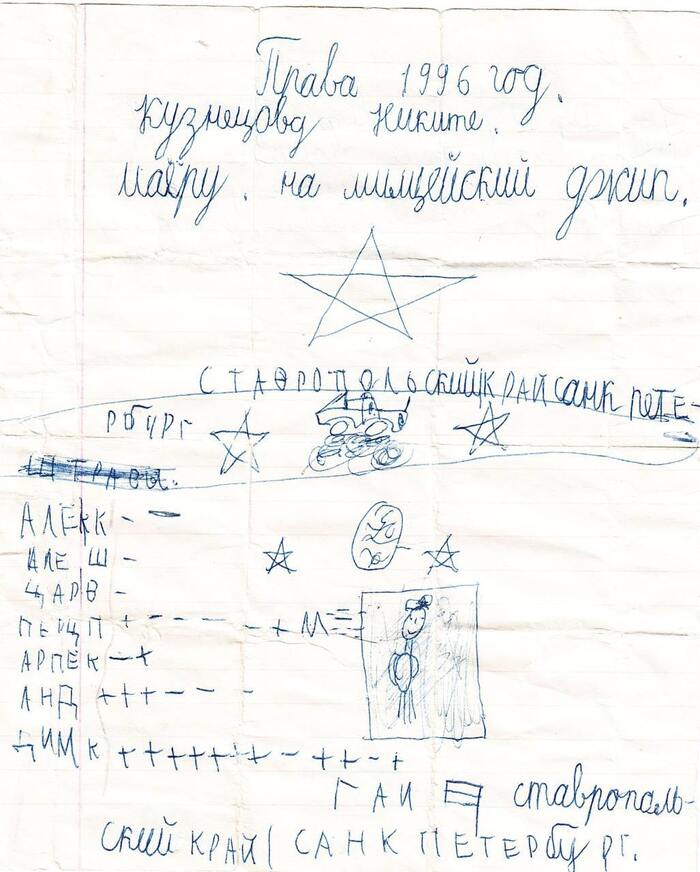 Права 1996 год.
Кузнецова Никите.
на милицейский джип.
СТАВРОПОЛЬСКИЙ КРАЙ САНК ПЕТЕ-
РБУРГ
ШТРАФЫ.
АЛЁКК - -
АЛЕШ -
ЦАРВ -
ПЬЦП + - - - - - + М
АРПЕК - +
АНД +++ - - -
ДИМК ++++++ - ++-+
ГАИ ставрополь-
ский КРАЙ | САНКПЕТЕРбУРГ.